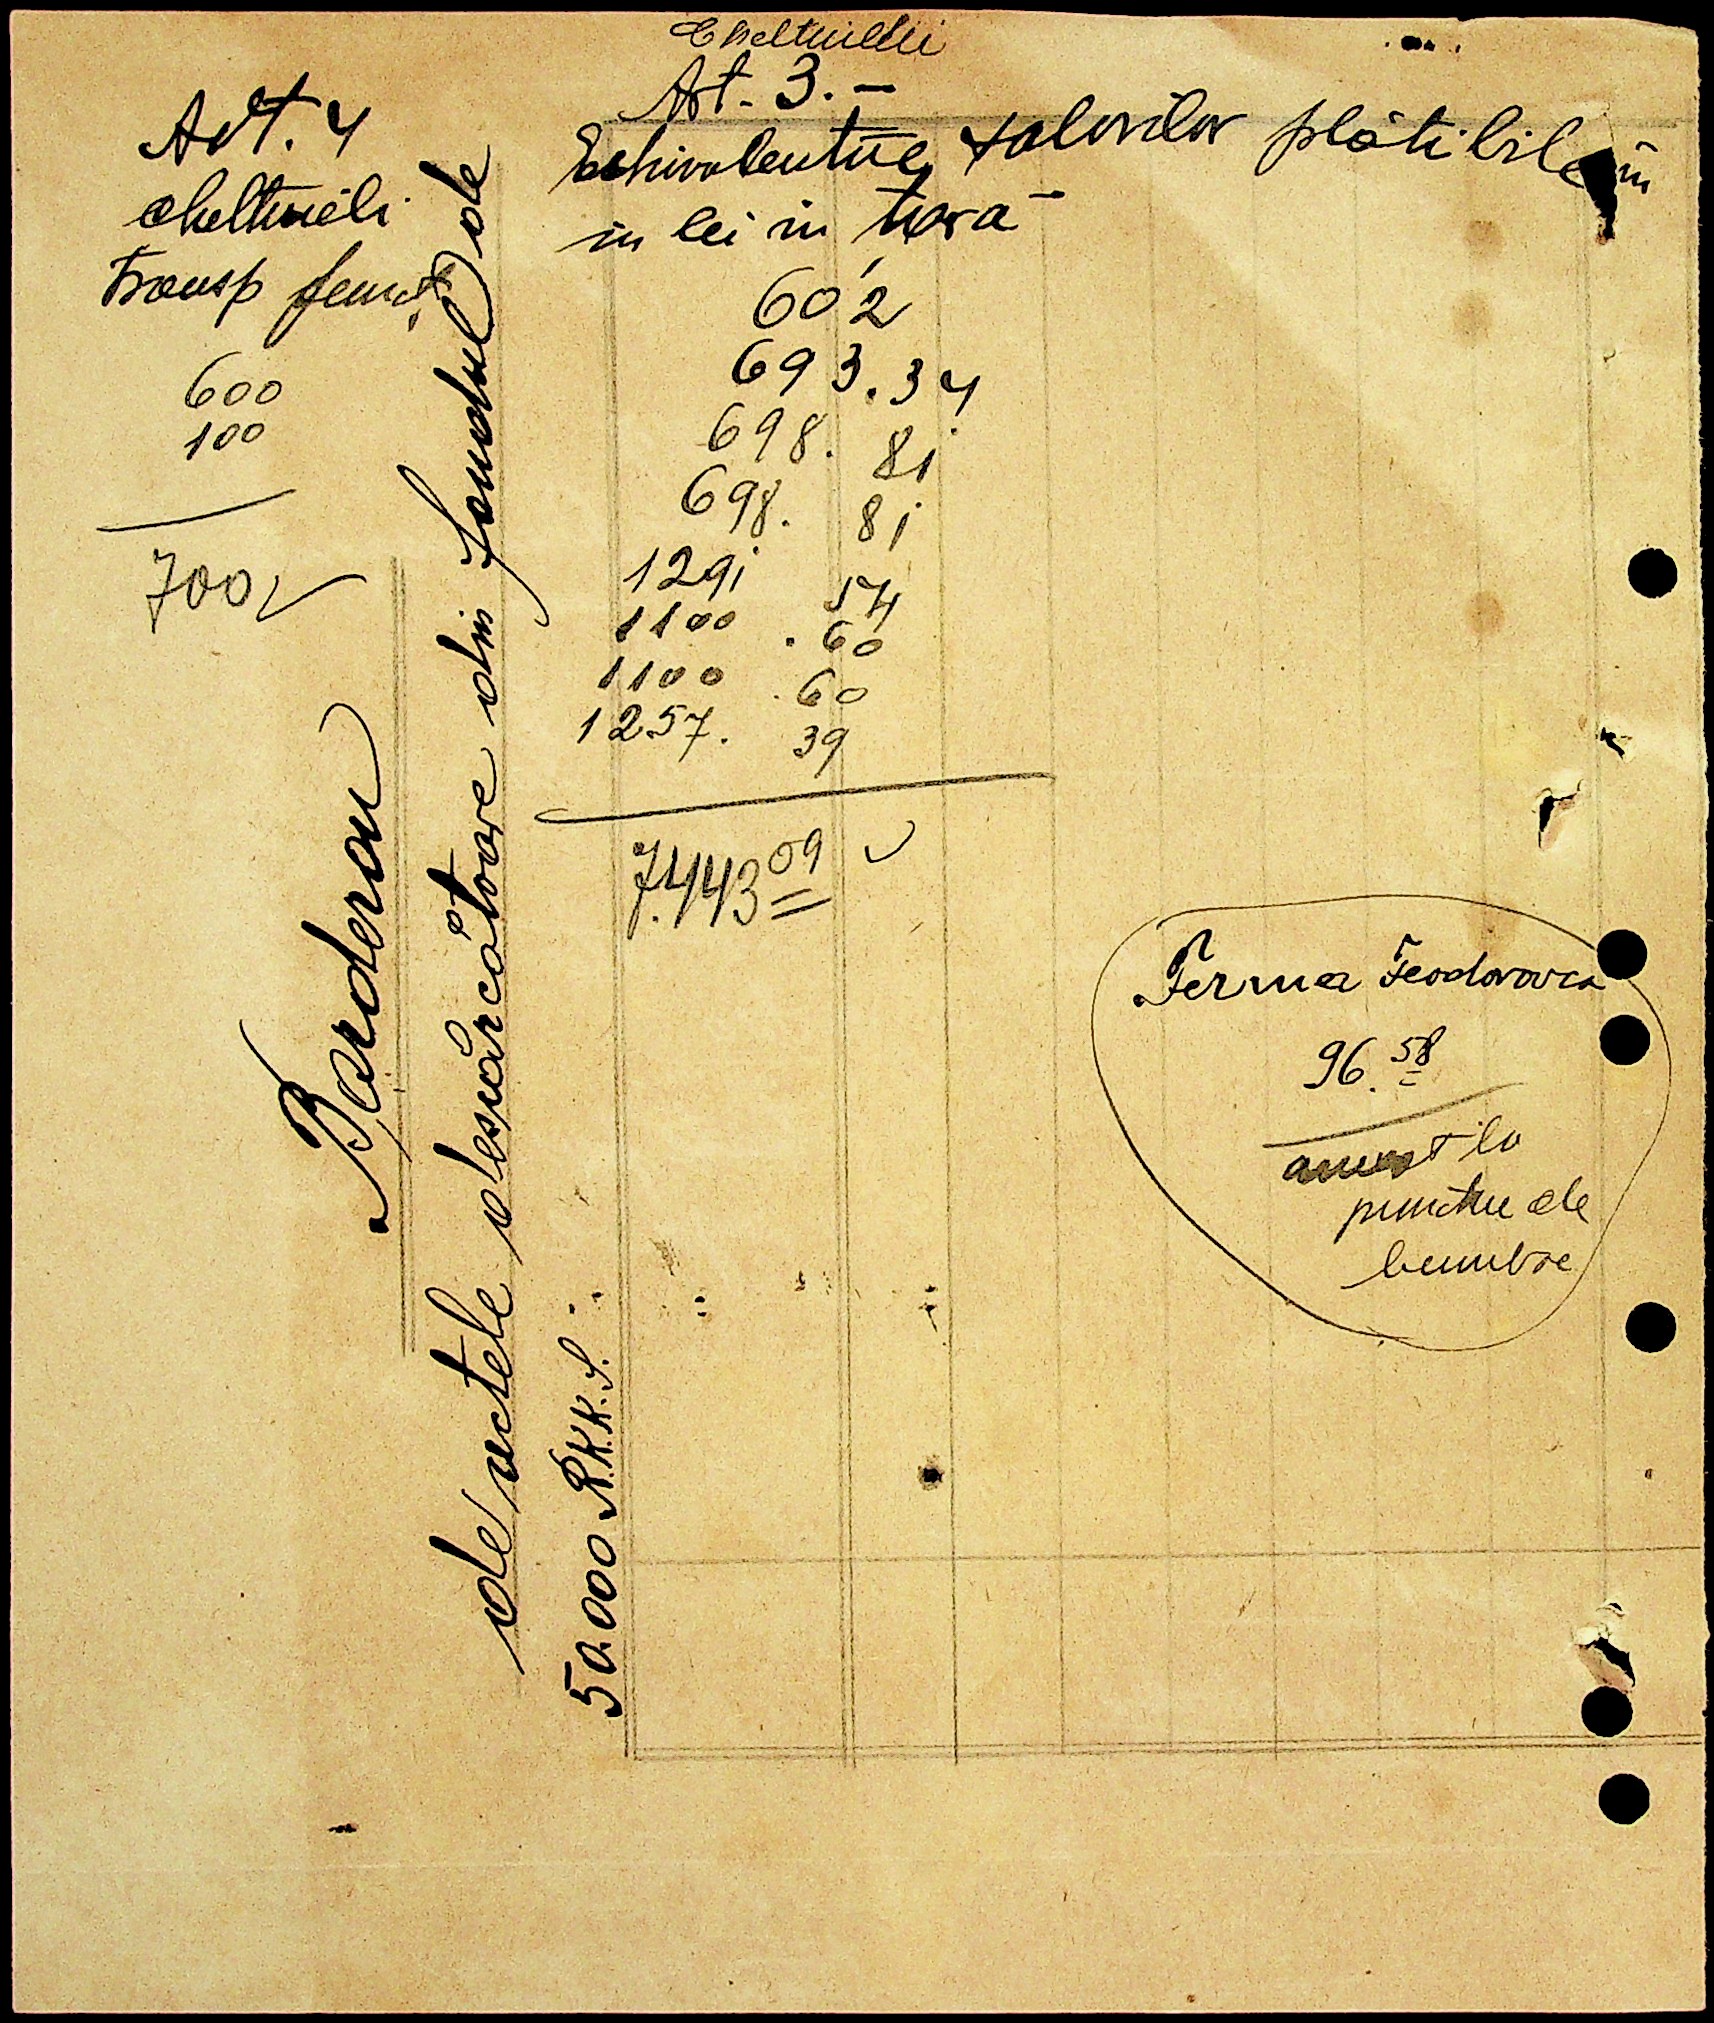 Cheltuieli
Art. 3. -
Echivalentul valorilor plătibile in
in lei in țară
602
693.34
698.81
698.81
1291 54
1100.60
1100.60
1257.39
7.443 09
Art. 4
cheltuieli
Transp
600
100
700
Borderou
de actele descărcătoare din fondul de
50.000 R.K.K.S.
Ferma Feodorovca
96.58
la
punctu de